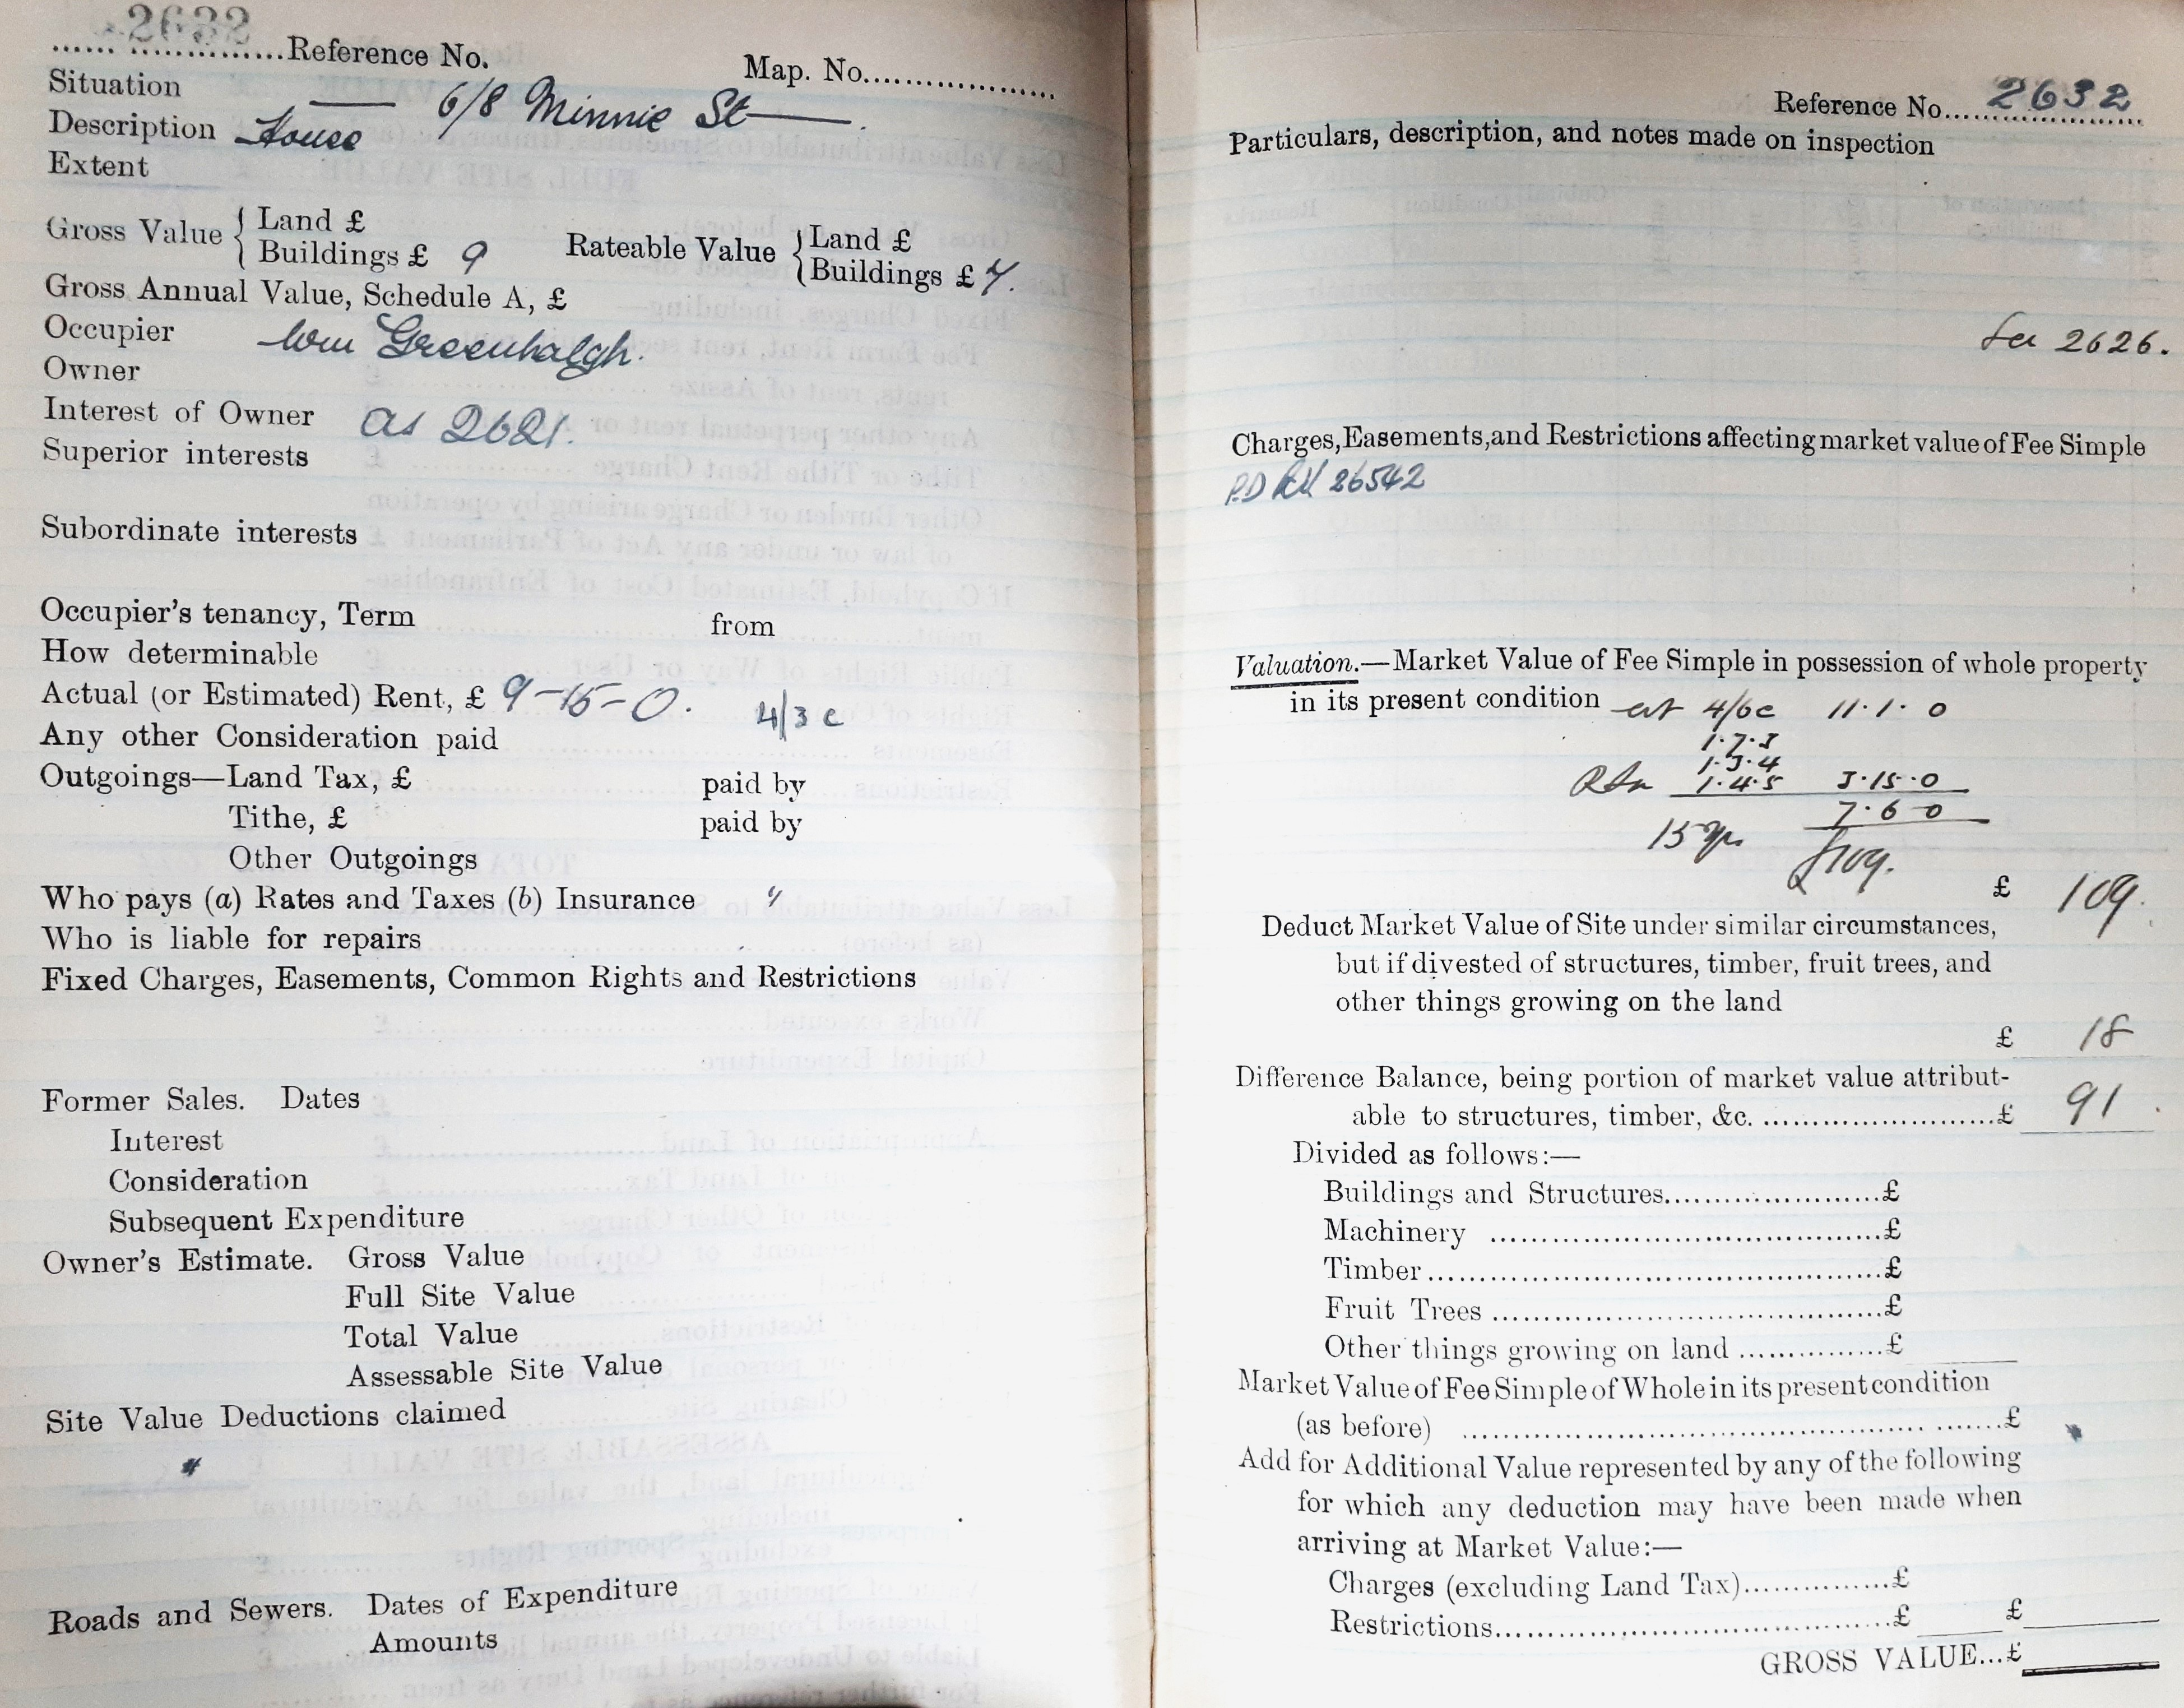 2632
...... ..............Reference No. Map. No........................
Situation — 6/8 Minnie St—.
Description House
Extent
Gross Value { Land £
Buildings £ 9
Rateable Value { Land £
Buildings £ 7.
Gross Annual Value, Schedule A, £
Occupier Wm Greenhalgh.
Owner
Interest of Owner as 2621.
Superior interests
Subordinate interests
Occupier's tenancy, Term from
How determinable
Actual (or Estimated) Rent, £ 9-15-0. 4/3 c
Any other Consideration paid
Outgoings—Land Tax, £ paid by
Tithe, £ paid by
Other Outgoings
Who pays (a) Rates and Taxes (b) Insurance "
Who is liable for repairs
Fixed Charges, Easements, Common Rights and Restrictions
Former Sales. Dates
Interest
Consideration
Subsequent Expenditure
Owner's Estimate. Gross Value
Full Site Value
Total Value
Assessable Site Value
Site Value Deductions claimed
Roads and Sewers. Dates of Expenditure
Amounts
Reference No.... 2632
Particulars, description, and notes made on inspection
See 2626.
Charges, Easements, and Restrictions affecting market value of Fee Simple
P.D 26542
Valuation.—Market Value of Fee Simple in possession of whole property
in its present condition at 4/6c 11.1.0
1.7.3
1.3.4
1.4.5 3.15.0
7.6 0
15 yrs £109.
£ 109.
Deduct Market Value of Site under similar circumstances,
but if divested of structures, timber, fruit trees, and
other things growing on the land
£ 18
Difference Balance, being portion of market value attribut-
able to structures, timber, &c. .........................£ 91
Divided as follows:—
Buildings and Structures......................£
Machinery .......................................£
Timber..............................................£
Fruit Trees .......................................£
Other things growing on land ...............£
Market Value of Fee Simple of Whole in its present condition
(as before) ................................................ .......£
Add for Additional Value represented by any of the following
for which any deduction may have been made when
arriving at Market Value:—
Charges (excluding Land Tax)...............£
Restrictions.........................................£ £
GROSS VALUE...£